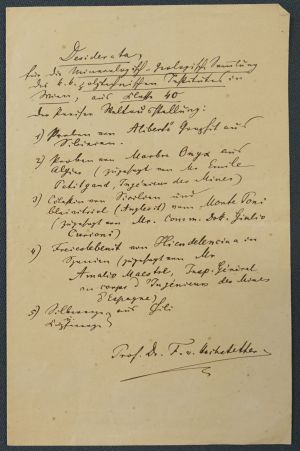 Desiderata
für die Mineralogisch-Geologische Sammlung
des k.k. polytechnischen Institutes in
Wien, aus Klasse 40
der Pariser Weltausstellung:
1) Proben von Aliberts Graphit aus
Sibirien.
2) Proben von Marbre Onyx aus
Algier (zugesagt von Mr Emile
Petitgand, Ingénieur des Mines)
3) von Sardinien und
Bleivitriol (Anglesit) vom Monte Poni
(zugesagt von Mr. Comm. Dr. Giulio
Curioni)
4) Freieslebenit von Hiendelencina in
Spanien (zugesagt von Mr
Amalio Maestre, Insp. Général
du corps d'Ingénieurs des Mines
d'Espagne)
5) Silbererze aus Chili
Kupfererze
Prof. Dr. F. v. Hochstetter